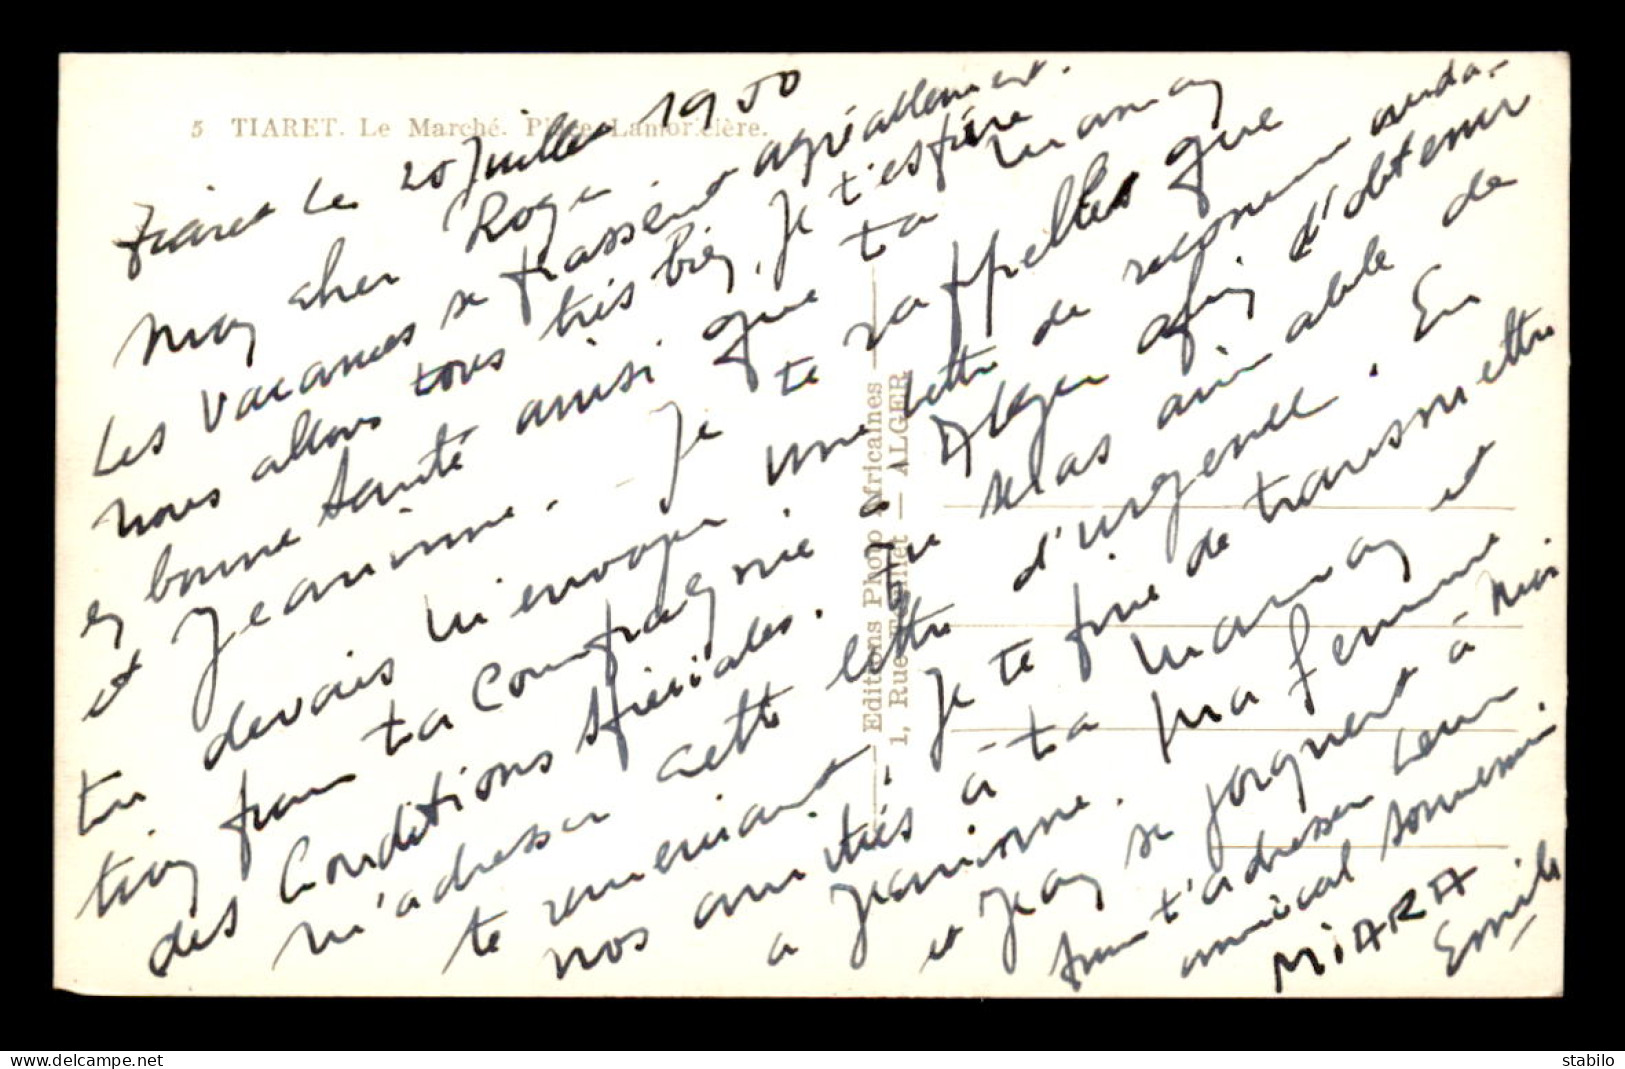 5 TIARET. Le Marché. Place Lamoricière.
Tiaret le 20 Juillet 1950
Mon cher Roger
Les vacances se passent agréablement.
nous allons tous très bien. Je t'espère
en bonne santé ainsi que ta maman
et Jeannine. - Je te rappelles que
tu devais m'envoyer une lettre de recommanda-
tion pour ta Compagnie à Alger afin d'obtenir
des Conditions spéciales. Tu seras aimable de
m'adresser cette lettre d'urgence. En
te remerciant, Je te prie de transmettre
nos amitiés à ta maman et
a Jeannine. Ma femme
et Jean se joignent à moi
pour t'adresser leur
amical souvenir.
MIARA
Emile
Editions Photo Africaines
1, Rue — ALGER
stabilo
https://www.delcampe.net